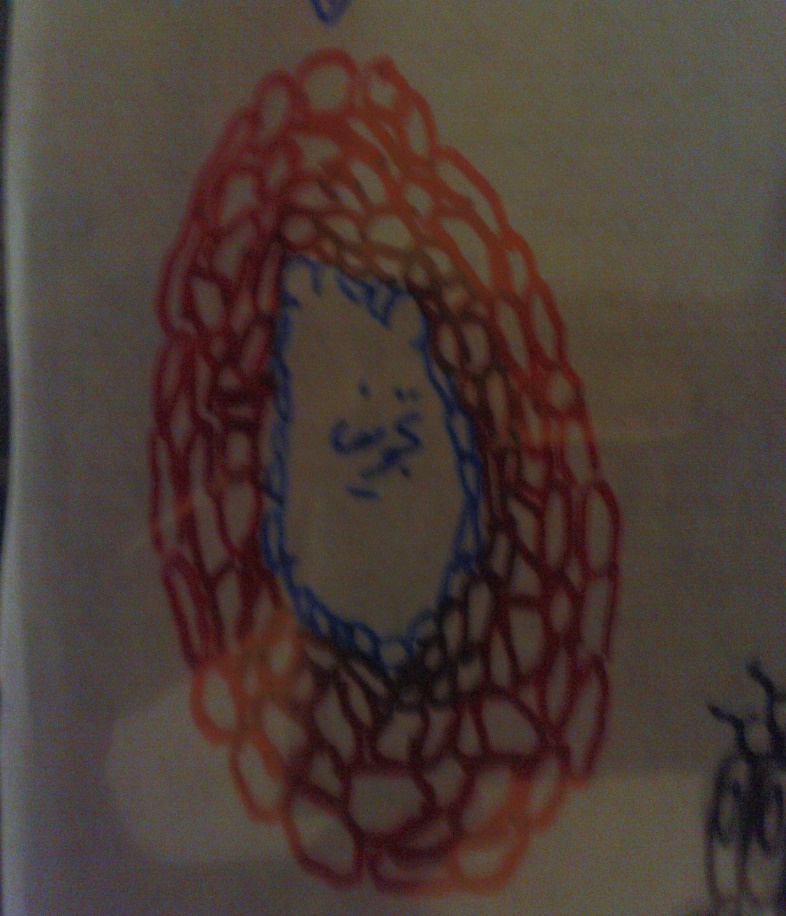 تجويف